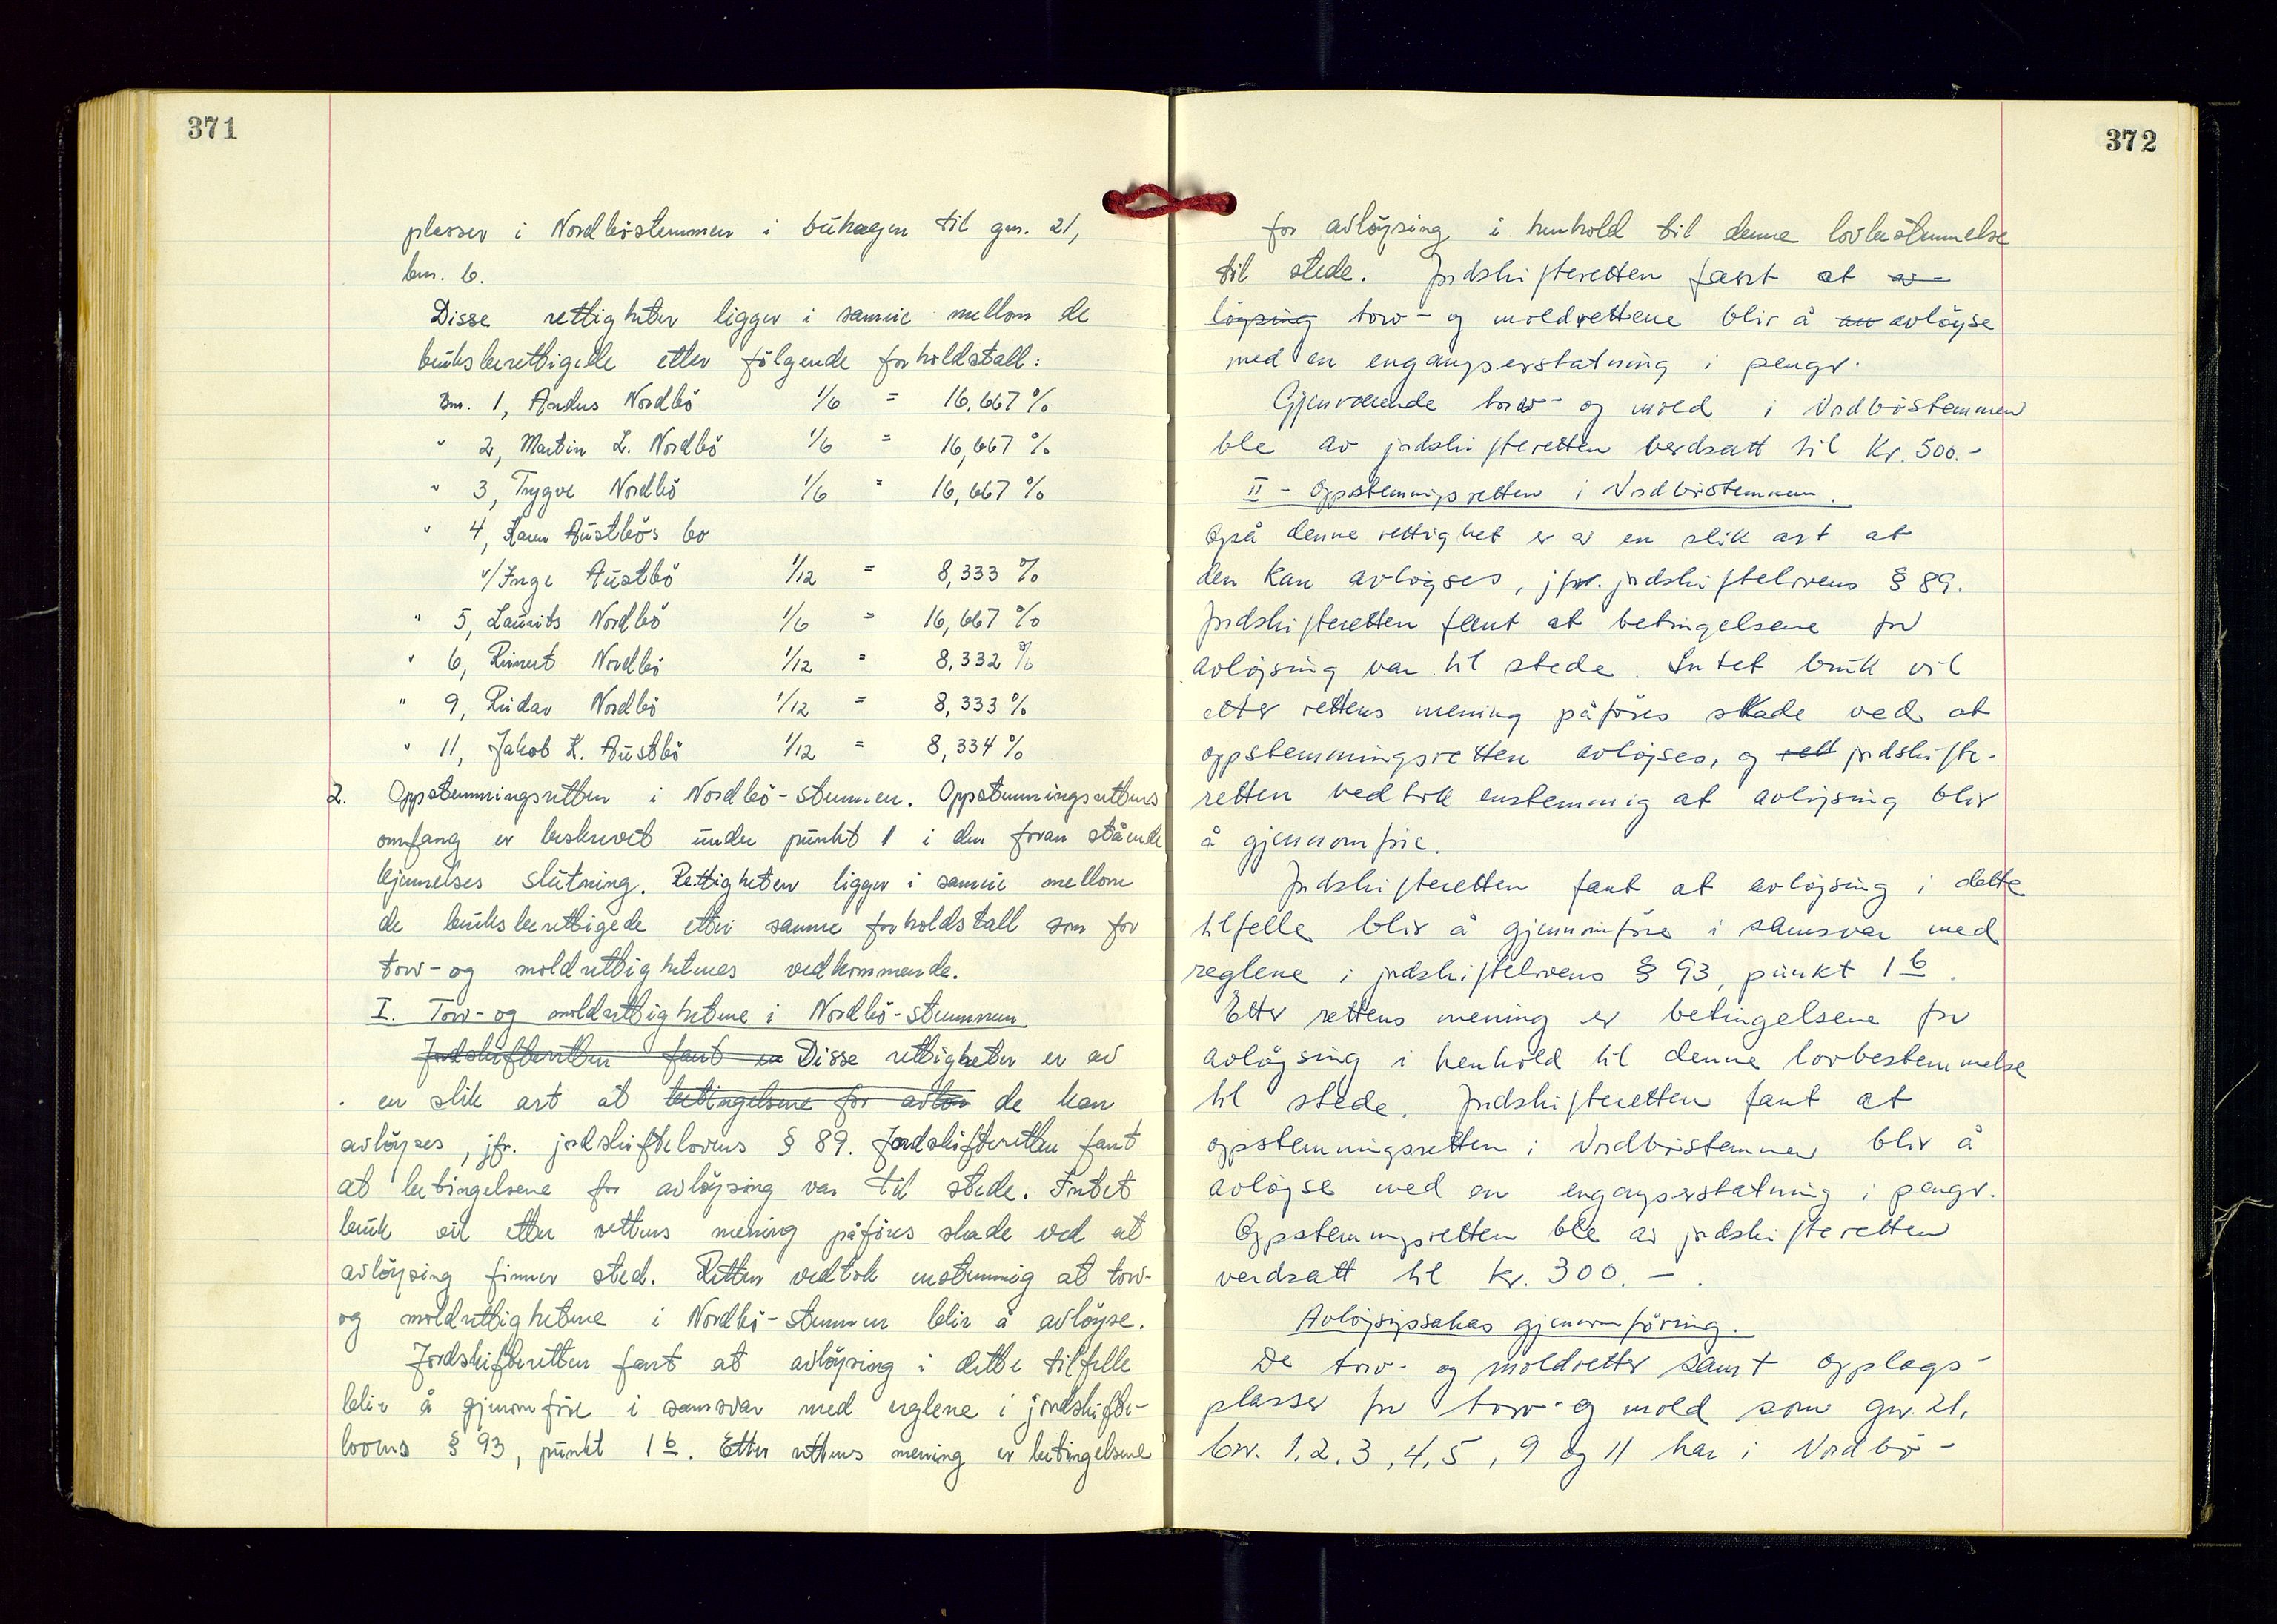 371
plasser i Nordböstemmen i buhagen til gnr. 21,
bnr. 6.
Disse rettigheter ligger i sameie mellom de
bruksberettigede etter følgende forholdstall:
Bnr. 1, Andus Nordbö 1/6 = 16,667 %
" 2, Martin L. Nordbö 1/6 = 16,667 %
" 3, Trygve Nordbö 1/6 = 16,667 %
" 4, Karen Austbös bo
v/Inge Austbö 1/12 = 8,333 %
" 5, Laurits Nordbö 1/6 = 16,667 %
" 6, Reinert Nordbö 1/12 = 8,332 %
" 9, Reidar Nordbö 1/12 = 8,333 %
" 11, Jakob K. Austbö 1/12 = 8,334 %
2. Oppstemmingsretten i Nordbö-stemmen. Oppstemmingsrettens
omfang er beskrevet under punkt 1 i den foran stående
kjennelses slutning. Rettigheten ligger i sameie mellom
de bruksberettigede etter samme forholdstall som for
torv- og moldrettighetenes vedkommende.
I. Torv- og moldrettighetene i Nordbö-stemmen
Jordskifteretten fant en Disse rettigheter er av
en slik art at betingelsene for avlön de kan
avlöyses, jfr. jordskiftelovens § 89. Jordskifteretten fant
at betingelsene for avlöysing var til stede. Intet
bruk vil etter rettens mening påföres skade ved at
avlöysing finner sted. Retten vedtok enstemmig at torv-
og moldrettighetene i Nordbö-stemmen blir å avlöyse.
Jordskifteretten fant at avlöysing i dette tilfelle
blir å gjennomföre i samsvar med reglene i jordskifte-
lovens § 93, punkt 1 b. Etter rettens mening er betingelsene
372
for avlöysing i henhold til denne lovbestemmelse
til stede. Jordskifteretten fant at av-
löysing torv- og moldrettene blir å av avlöyse
med en engangserstatning i penger.
Gjenværende torv- og mold i Nordböstemmen
ble av jordskifteretten verdsatt til Kr. 500.-
II - Oppstemmingsretten i Nordböstemmen.
Også denne rettighet er av en slik art at
den kan avlöyses, jfr. jordskiftelovens § 89.
Jordskifteretten fant at betingelsene for
avlöysing var til stede. Intet bruk vil
etter rettens mening påföres skade ved at
oppstemmingsretten avlöyses, og rett jordskifte-
retten vedtok enstemmig at avlöysing blir
å gjennomföre.
Jordskifteretten fant at avlöysing i dette
tilfelle blir å gjennomföre i samsvar med
reglene i jordskiftelovens § 93, punkt 1 b.
Etter rettens mening er betingelsene for
avlöysing i henhold til denne lovbestemmelse
til stede. Jordskifteretten fant at
oppstemmingsretten i Nordböstemmen blir å
avlöyse med en engangserstatning i penger.
Oppstemmingsretten ble av jordskifteretten
verdsatt til kr. 300.-.
Avlöysingssakas gjennomföring.
De torv- og moldretter samt opplags-
plasser for torv- og mold som gnr. 21,
bnr. 1, 2, 3, 4, 5, 9 og 11 har i Nordbö-